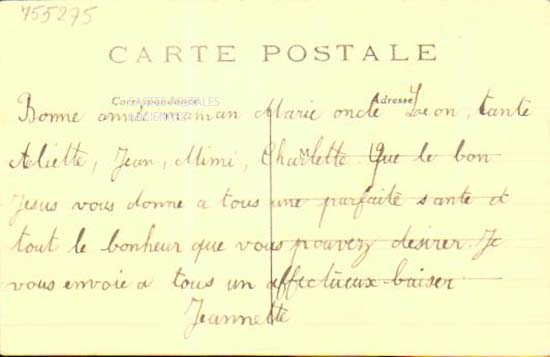 755275
CARTE POSTALE
CARTES POSTALES
ANCIENNES
Correspondance
Adresse
Bonne année maman Marie oncle Léon, tante
Aliette, Jean, Mimi, Charlette Que le bon
Jesus vous donne a tous une parfaite sante et
tout le bonheur que vous pouvez desirer. Je
vous envoie a tous un affectueux baiser.
Jeannette